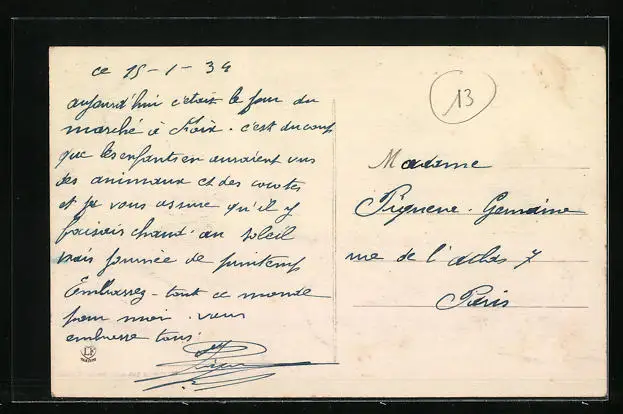 ce 15-1-34
aujourd'hui c'etait le jour du
marché à Foix. c'est du coup
que les enfants en auraient vus
des animaux et des cocotes
et je vous assure qu'il y
faisais chaud au soleil
vrais journée de printemp
Embrassez-tout ce monde
pour moi. vous
embrasse tous.
13
Madame
Pigneve. Germaine
rue de l'atlas 7
Paris